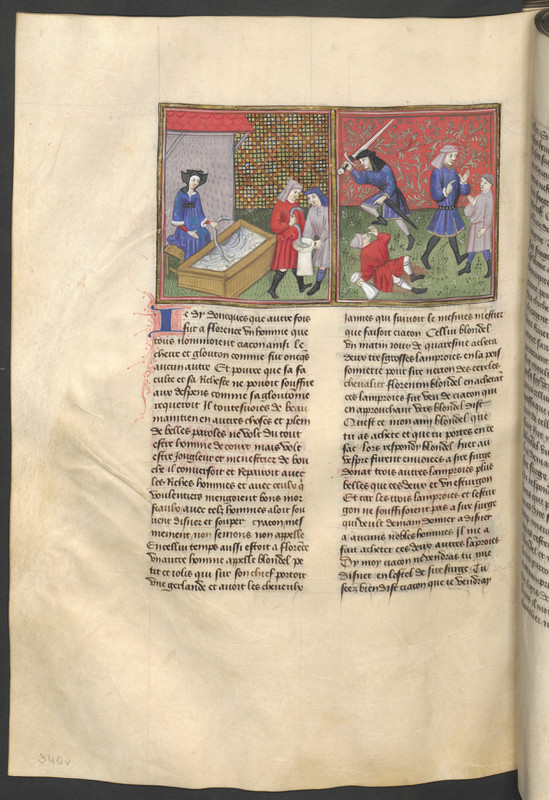 Ie dy doncques que autre fois
fut a florence un homme que
tous nommoient ciacon ainsi le
cheur et glouton comme fut oncqs
aucun autre Et pource que sa fa
culte et sa richesse ne povoit souffire
aux despens comme sa gloutonnie
requeroit Il toutesvoies de beau
maintien en autres choses et plein
de belles paroles ne volt du tout
estre homme de court mais volt
estre jongleur et menestrier de bou
che il conversoit et repairoit avec
les riches hommes et avec ceulx q
voulentiers mengoient bons mor
seaulx avec telz hommes aloit sou
vent disner et souper ciacon mes
mement non semons non appelle
En cellui temps aussi estoit a florece
un autre homme appelle blondel pe
tit et iolis qui sur son chief portoit
une gerlande et avoit les cheveulx
jaunes qui suivoit le mesmes mestier
que faisoit ciacon Cellui blondel
un matin iour de quaresme acheta
deux tresgrosses lamproies en la pois
sonnerie pour sire necion des cercles
chevalier florentin blondel en achetat
ces lamproies fut veu de ciacon qui
en approuchant vers blondel dist
Quest ce mon ami blondel que
tu as achete et que tu portes en ce
sac Lors respondy blondel hier au
vespre furent envoiees a sire surge
donat trois autres lamproies plus
belles que ces deux et un esturgon
Et car les trois lamproies et lestur
gon ne souffisoient pas a sire surge
qui veult demain donner a disner
a aucuns nobles hommes Il me a
fait acheter ces deux autres laproies
Dy moy ciacon ne vendras tu mie
disner en lostel de sire surge Tu
scez bien dist ciacon que je vendray
340v